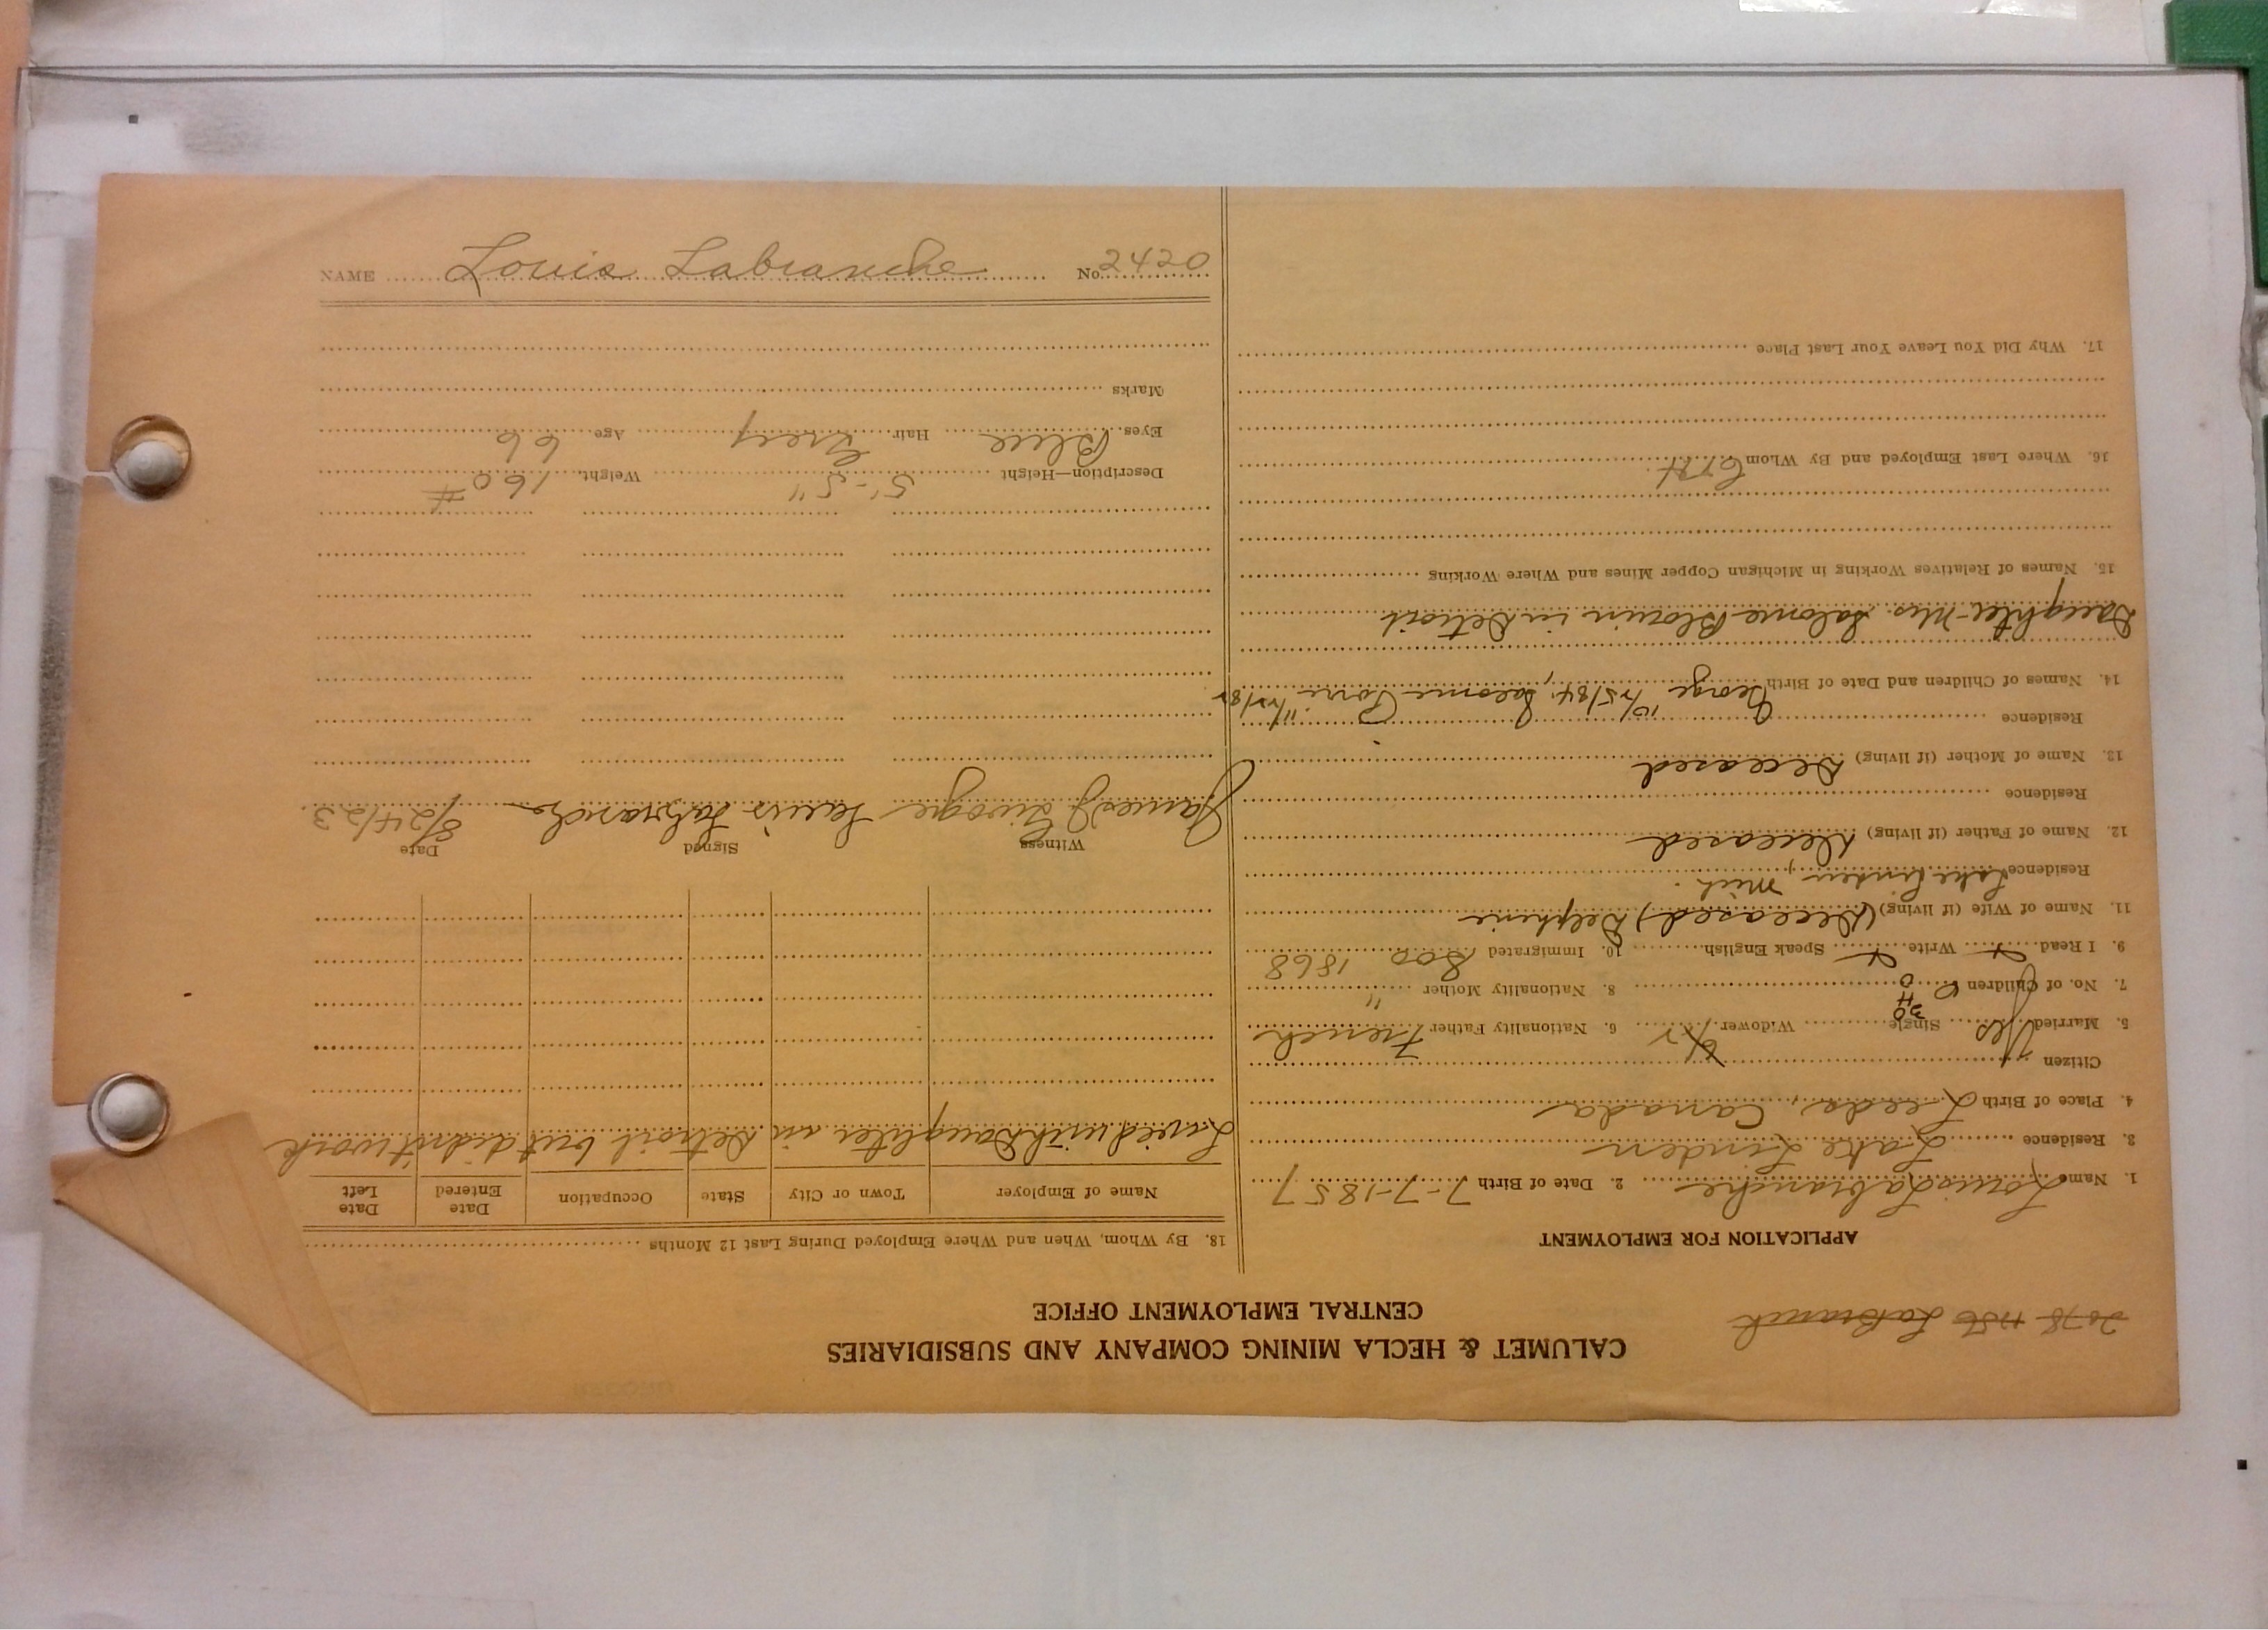 2078 1756 LaBranch
CALUMET & HECLA MINING COMPANY AND SUBSIDIARIES
CENTRAL EMPLOYMENT OFFICE
APPLICATION FOR EMPLOYMENT
1. Name Louis Labranche 2. Date of Birth 7-7-1857
3. Residence Lake Linden
4. Place of Birth Leeds, Canada
Citizen Yes
5. Married Single Widower 6. Nationality Father French
7. No. of Children 2 8. Nationality Mother "
9. I Read Write Speak English 10. Immigrated Soo 1868
11. Name of Wife (if living) (Deceased) Delphine
Residence Lake Linden, Mich.
12. Name of Father (if living) Deceased
Residence
13. Name of Mother (if living) Deceased
Residence
14. Names of Children and Date of Birth George 10/25/84, Salome
Daughter-Mrs. Salome Blouin in Detroit
15. Names of Relatives Working in Michigan Copper Mines and Where Working
16. Where Last Employed and By Whom C&H
17. Why Did You Leave Your Last Place
18. By Whom, When and Where Employed During Last 12 Months
Name of Employer Town or City State Occupation Date Entered Date Left
Lived with Daughter in Detroit but didn't work
Witness Signed Date
James J. Louis Labranche 8/24/23.
Description—Height 5'-5" Weight 160 #
Eyes Blue Hair Grey Age 66
Marks
NAME Louis Labranche No. 2420